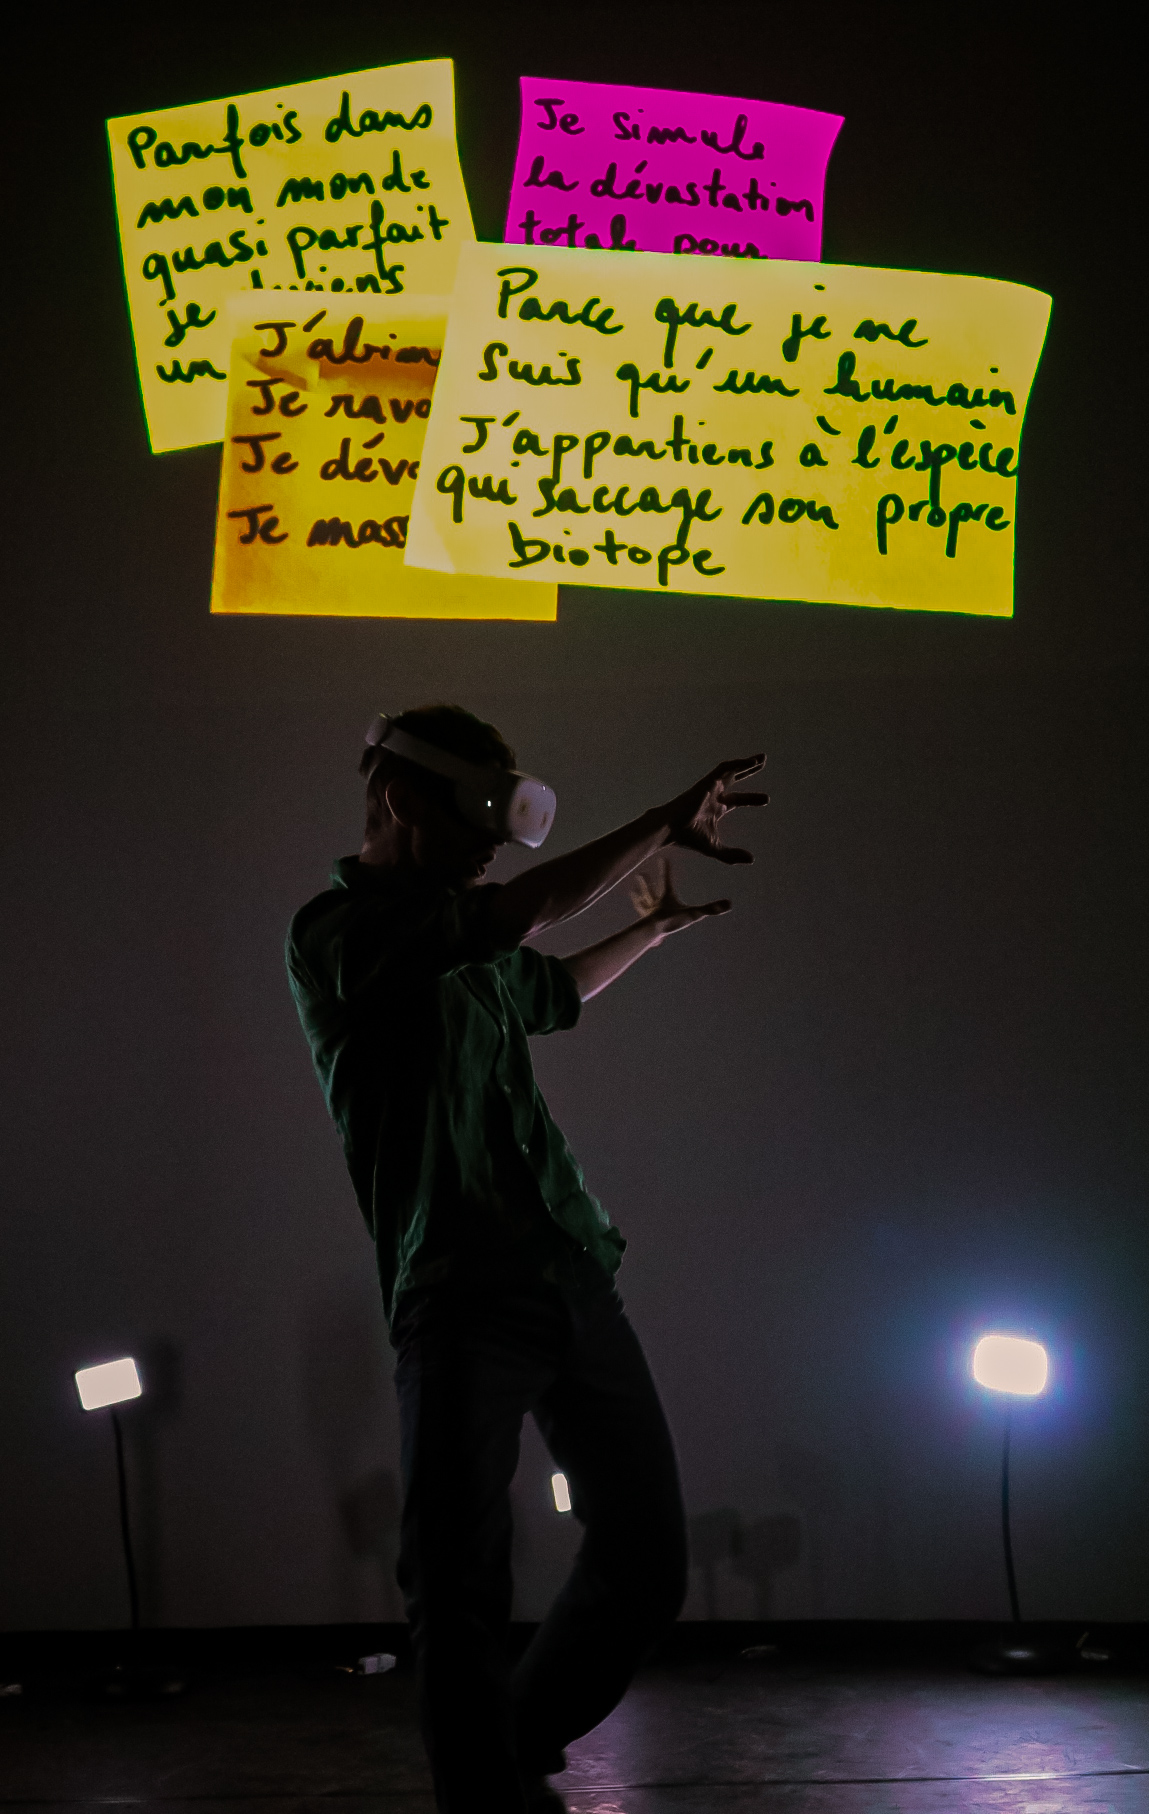 Parfois dans
mon monde
quasi parfait
je
un
Je simule
la dévastation
totale pour
J'abîm
Je rava
Je déva
Je mass
Parce que je ne
Suis qu'un humain
J'appartiens à l'espèce
qui saccage son propre
biotope